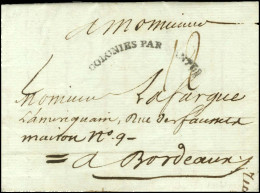 a Monsieur
COLONIES PAR
Monsieur Lafargue
L'ameriquain, Rue des faussets
maison N°. 9 -
= a Bordeaux